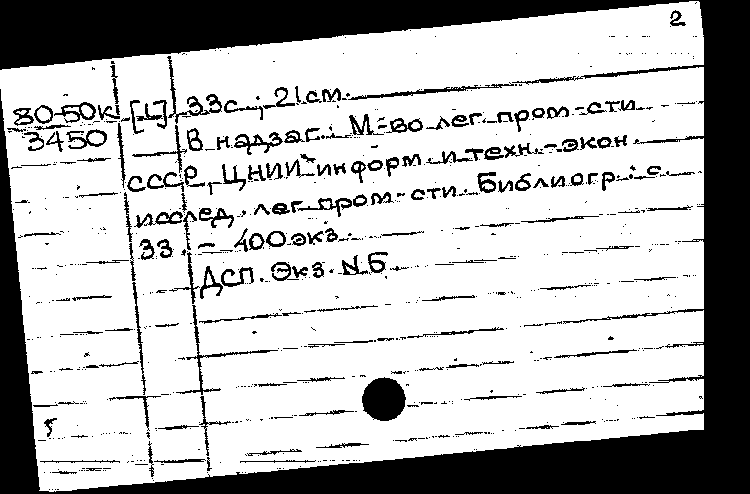 2
80-50к [1] 33с.; 21см.
3450 В надзаг.: М-во лег. пром-сти
СССР, ЦНИИ информ. и техн.-экон.
исслед. лег. пром-сти. Библиогр.: с.
33. - 400 экз.
ДСП. Экз. N Б